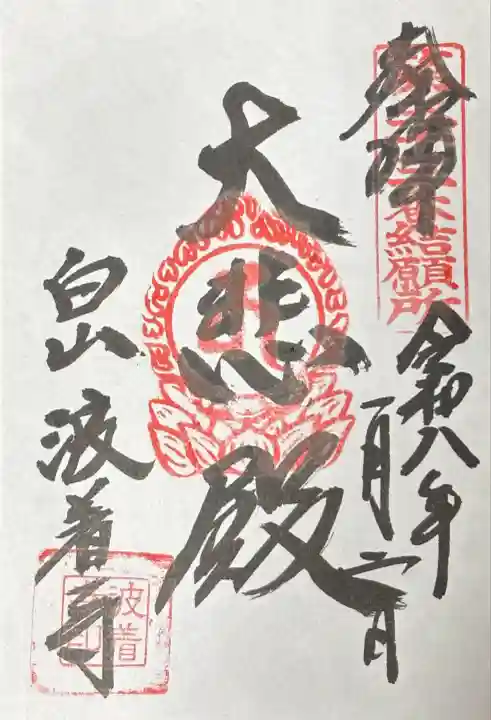 奉拝
令和八年
一月二日
大悲殿
白山 波着寺
番結願所
波着
印